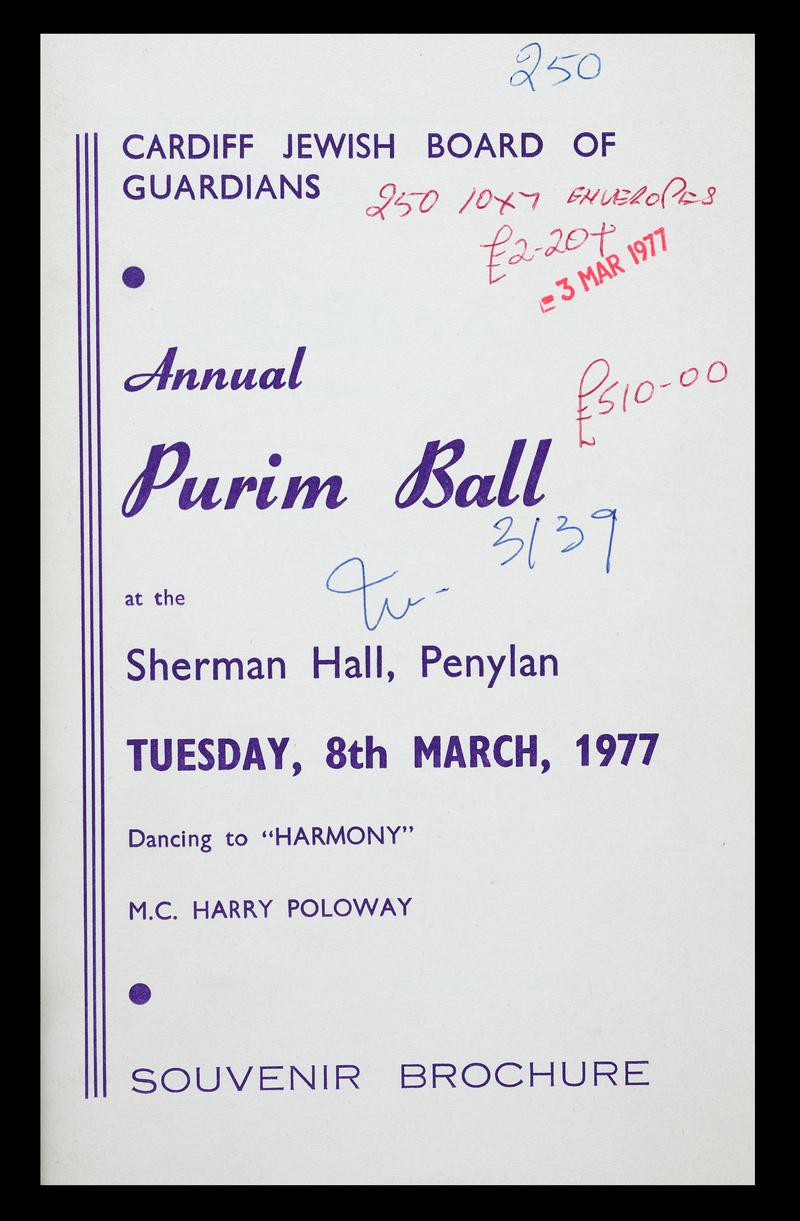 250
CARDIFF JEWISH BOARD OF
GUARDIANS
250 10x7 ENVELOPES
£2-20
3 MAR 1977
Annual
£510-00
Purim Ball
3139
at the
Sherman Hall, Penylan
TUESDAY, 8th MARCH, 1977
Dancing to “HARMONY”
M.C. HARRY POLOWAY
SOUVENIR BROCHURE